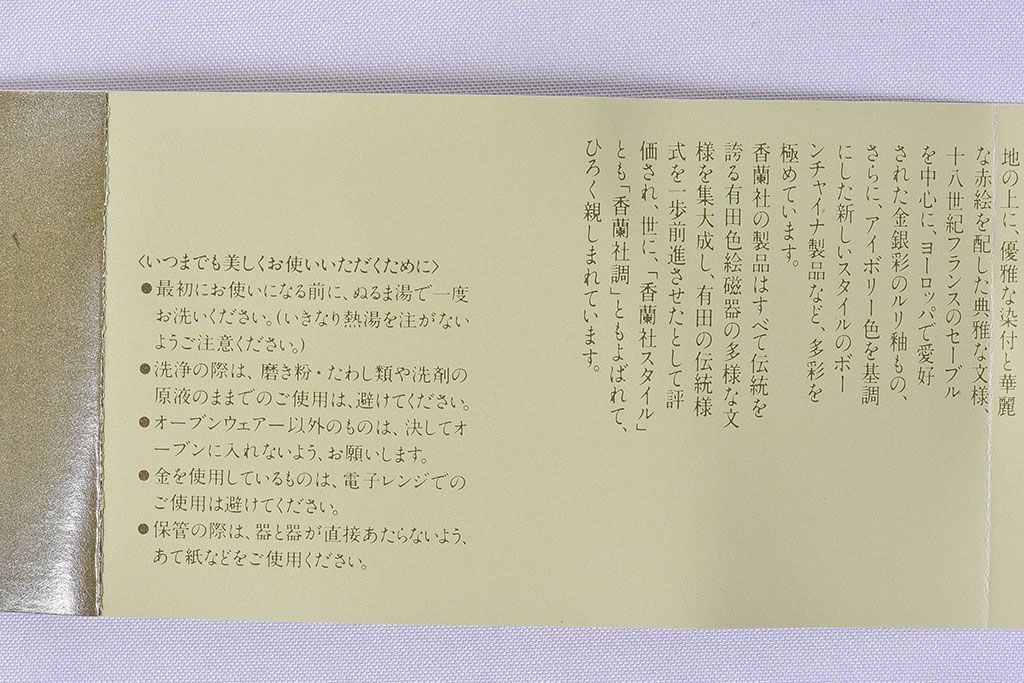 地の上に、優雅な染付と華麗
な赤絵を配した典雅な文様
十八世紀フランスのセーブル
を中心に、ヨーロッパで愛好
された金銀彩のルリ釉もの、
さらに、アイボリー色を基調
にした新しいスタイルのボー
ンチャイナ製品など、多彩を
極めています。
香蘭社の製品はすべて伝統を
誇る有田色絵磁器の多様な文
様を集大成し、有田の伝統様
式を一歩前進させたとして評
価され、世に、「香蘭社スタイル」
とも「香蘭社調」ともよばれて、
ひろく親しまれています。
〈いつまでも美しくお使いいただくために〉
●最初にお使いになる前に、ぬるま湯で一度
お洗いください。(いきなり熱湯を注がない
ようご注意ください。)
●洗浄の際は、磨き粉・たわし類や洗剤の
原液のままでのご使用は、避けてください。
●オーブンウェアー以外のものは、決してオ
ーブンに入れないよう、お願いします。
●金を使用しているものは、電子レンジでの
ご使用は避けてください。
●保管の際は、器と器が直接あたらないよう、
あて紙などをご使用ください。